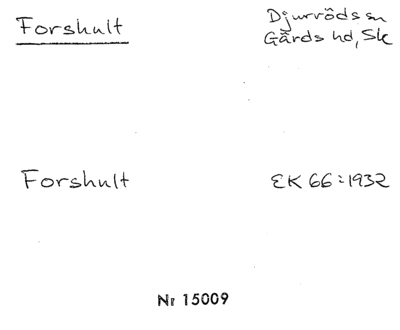 Forshult
Djurröds sn
Gärds hd, Sk
Forshult
EK 66:1932
Nr 15009